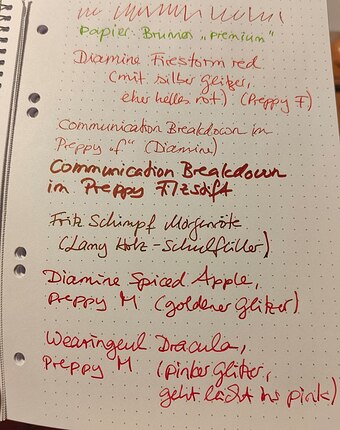 Papier: Brunnen „Premium"
Diamine Firestorm red
(mit silber Glitzer,
eher helles rot) (Preppy F)
Communication Breakdown im
Preppy „f" (Diamine)
Communication Breakdown
im Preppy Filzstift
Fritz Schimpf Morgenröte
(Lamy Holz-Schulfüller)
Diamine Spiced Apple,
Preppy M (goldener Glitzer)
Wearingeul Dracula,
Preppy M (pinker Glitzer,
geht leicht ins pink)